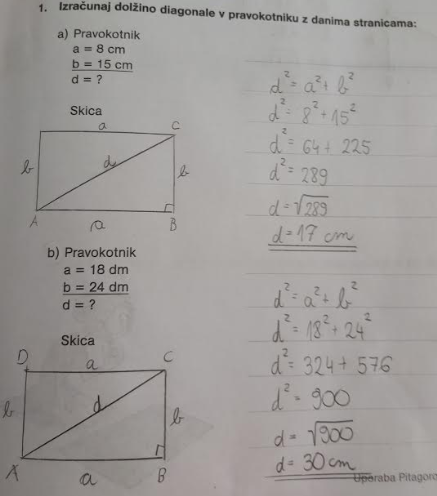 1. Izračunaj dolžino diagonale v pravokotniku z danima stranicama:
a) Pravokotnik
a = 8 cm
b = 15 cm
d = ?
Skica
a
C
b
d
b
A
a
B
d² = a² + b²
d² = 8² + 15²
d² = 64 + 225
d² = 289
d = √289
d = 17 cm
b) Pravokotnik
a = 18 dm
b = 24 dm
d = ?
Skica
D
a
C
b
d
b
A
a
B
d² = a² + b²
d² = 18² + 24²
d² = 324 + 576
d² = 900
d = √900
d = 30 cm
Uporaba Pitagoro